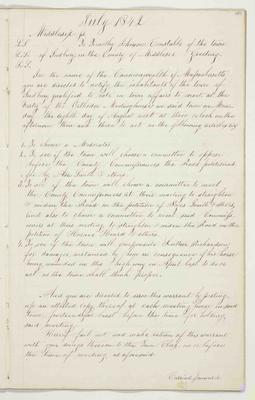 July 1842
Middlesex ss
To Timothy Johnson Constable of the town
L.S. of Sudbury in the County of Middlesex Greeting
In the name of the Commonwealth of Massachusetts
you are directed to notify the inhabitants of the town of
Sudbury qualified to vote in town affairs to meet at the
Vestry of the Meetinghouse in said town on Mon-
day the eighth day of August next at three o'clock in the
afternoon then and there to act on the following articles viz
1. To choose a Moderator
2. To see if the town will choose a committee to oppose
before the County Commissioners the Road petitioned
for by Smith & others
3. To see if the town will choose a committee to meet
the County Commissioners at their meeting to straighten
& widen the Road on the petition of Smith & others,
and also to choose a committee to meet said Commiss-
ioners at their meeting to straighten & widen the Road on the
petition of & others
4. To see if the town will compensate Richardson
for damages sustained by him in consequence of his horse
being wounded on the highway in April last or do or
act as the town shall think proper.
And you are directed to serve this warrant by posting
up an attested copy thereof at each meeting house in said
town, fourteen days at least before the time for holding
said meeting.
Hereof fail not and make return of this warrant
with your doings thereon to the Town Clerk on or before
the time of meeting as aforesaid
Carried forward